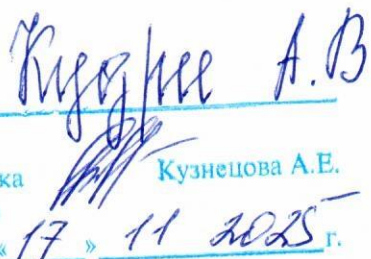 А.В
ка Кузнецова А.Е.
« 17 » 11 2025 г.